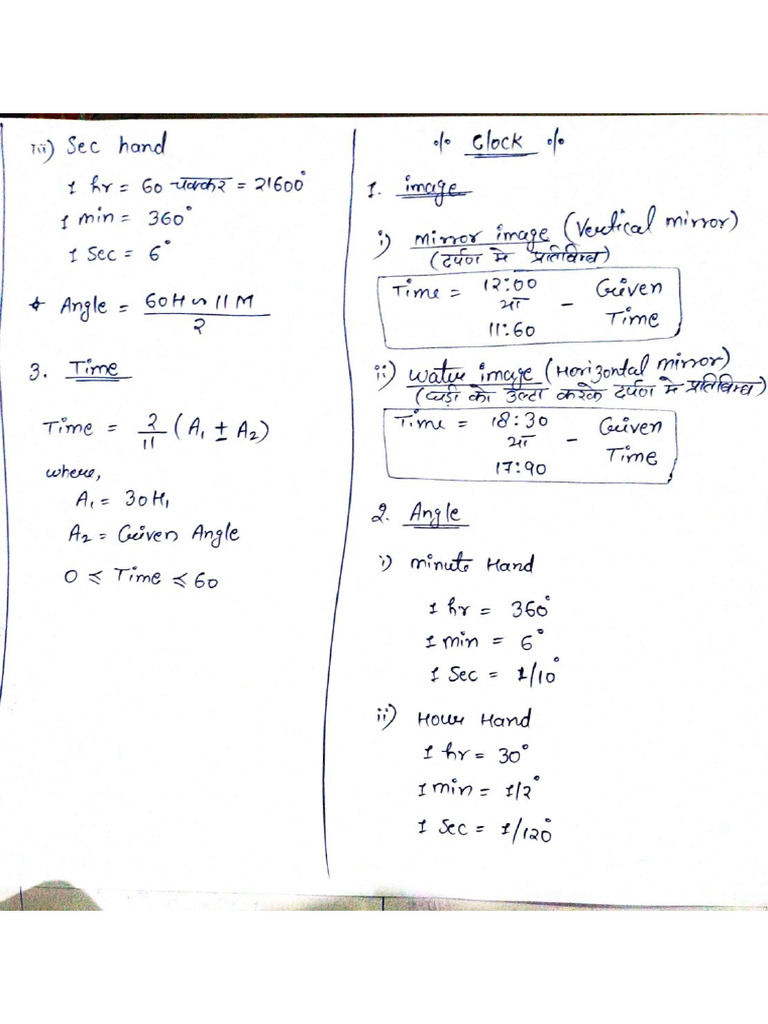 % Clock %
1. image
i) mirror image (Vertical mirror)
(दर्पण मे प्रतिबिम्ब)
Time = 12:00 या 11:60 - Given Time
ii) water image (Horizontal mirror)
(घड़ी को उल्टा करके दर्पण मे प्रतिबिम्ब)
Time = 18:30 या 17:90 - Given Time
2. Angle
i) minute Hand
1 hr = 360°
1 min = 6°
1 Sec = 1/10°
ii) Hour Hand
1 hr = 30°
1 min = 1/2°
1 Sec = 1/120°
iii) Sec hand
1 hr = 60 चक्कर = 21600°
1 min = 360°
1 Sec = 6°
* Angle = 60H ~ 11M / 2
3. Time
Time = 2/11 (A₁ ± A₂)
where,
A₁ = 30H₁
A₂ = Given Angle
0 ⩽ Time ⩽ 60